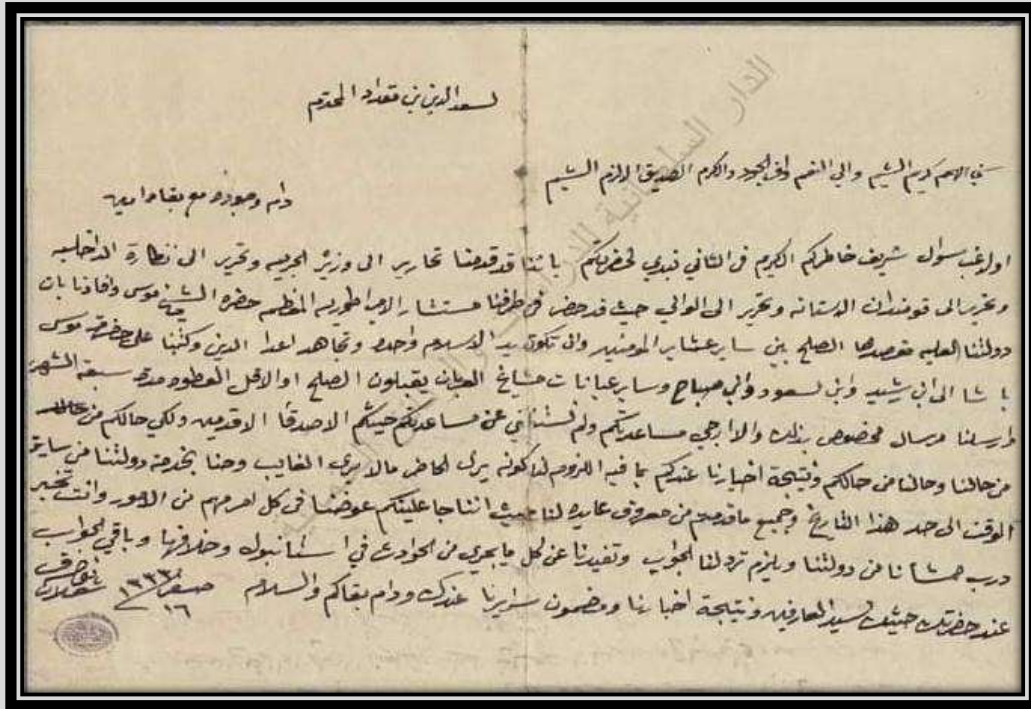 لسعد الدين بن مقداد المحترم
الشيم والي النعم وافي الجود والكرم الصديق الالزم الشيم
دام وجوده مع بقاه امين
اولا غب سوال شريف خاطركم الكريم في الثاني نبدي لحضرتكم باننا قد قدمنا تحارير الى وزير الحربيه وتحرير الى نظارة الداخليه
وتحرير الى قومندان الاستانه وتحرير الى الوالي حيث قد حضر في طرفنا مستشار الامبراطوريه المعظم حضرة الشيخ موسى وافادنا بان
دولتنا العليه مقصدها الصلح بين ساير عشاير المومنين وان تكون يد الاسلام واحده وتجاهد اعدا الدين وكتبنا على حضرة موسى
باشا الى ابن رشيد وابن سعود وابن صباح وساير مشايخ العربان يقبلون الصلح او الاقل العطوه مدة سبعة اشهر
وارسلنا مرسال مخصوص بذلك والا ارجى مساعدتكم ولم نستغني عن مساعدتكم حيثكم الاصدقا الاقدمين ولكي حالكم من
من حالنا وحالنا من حالكم ونتيجة اخبارنا عندكم بما فيه اللزوم لنا كونه يرى الحاضر مالا يرى الغايب وحنا بخدمة دولتنا من سابق
الوقت الى حد هذا التاريخ وجميع ما قدمتم من معروف عايده لنا حيث اننا جاعلينكم عوضنا في كل امر مهم من الامور وانت تخبر
درب ممشانا من دولتنا ويلزم ترد لنا الجواب وتفيدنا عن كل ما يجري من الحوادث في استانبول وخلافها وباقي الجواب
عند حضرتك حيثك سيد العارفين ونتيجة اخبارنا ومضمون سرايرنا عندك ودام بقاكم والسلام
١٦ صفر ١٣٣٣
نواف شعلان
الدار السلمانية